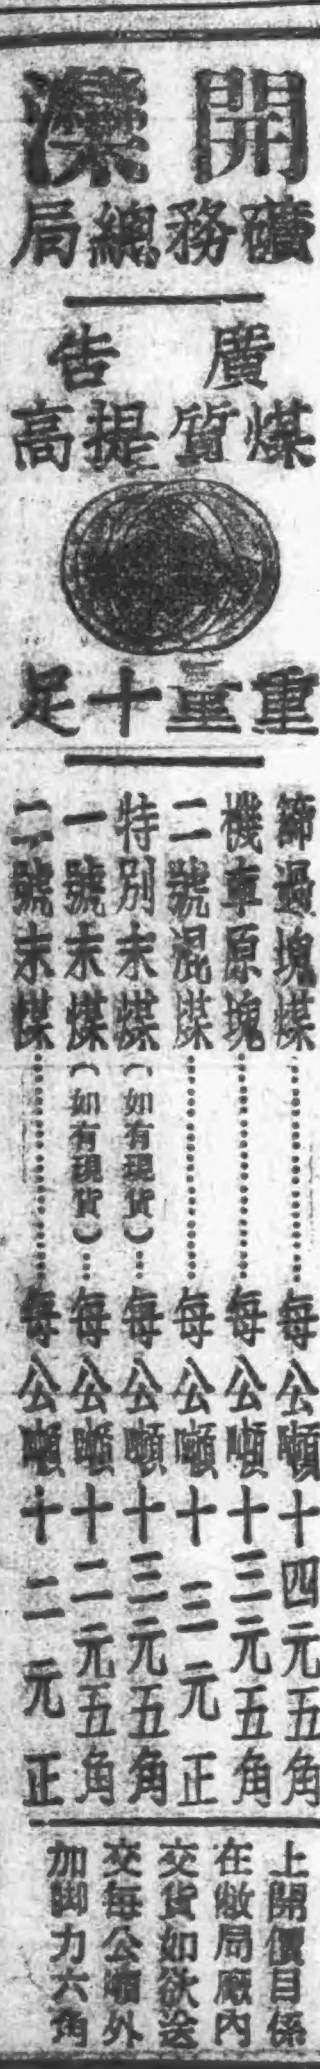 開灤
礦務總局
廣告
煤質提高
重量十足
篩過塊煤……每公噸十四元五角
機車原塊……每公噸十三元五角
二號混煤……每公噸十三元正
特別末煤(如有現貨)…每公噸十三元五角
一號末煤(如有現貨)…每公噸十二元五角
二號末煤……每公噸十二元正
上開價目係
在敝局廠內
交貨如欲送
交每公噸外
加脚力六角